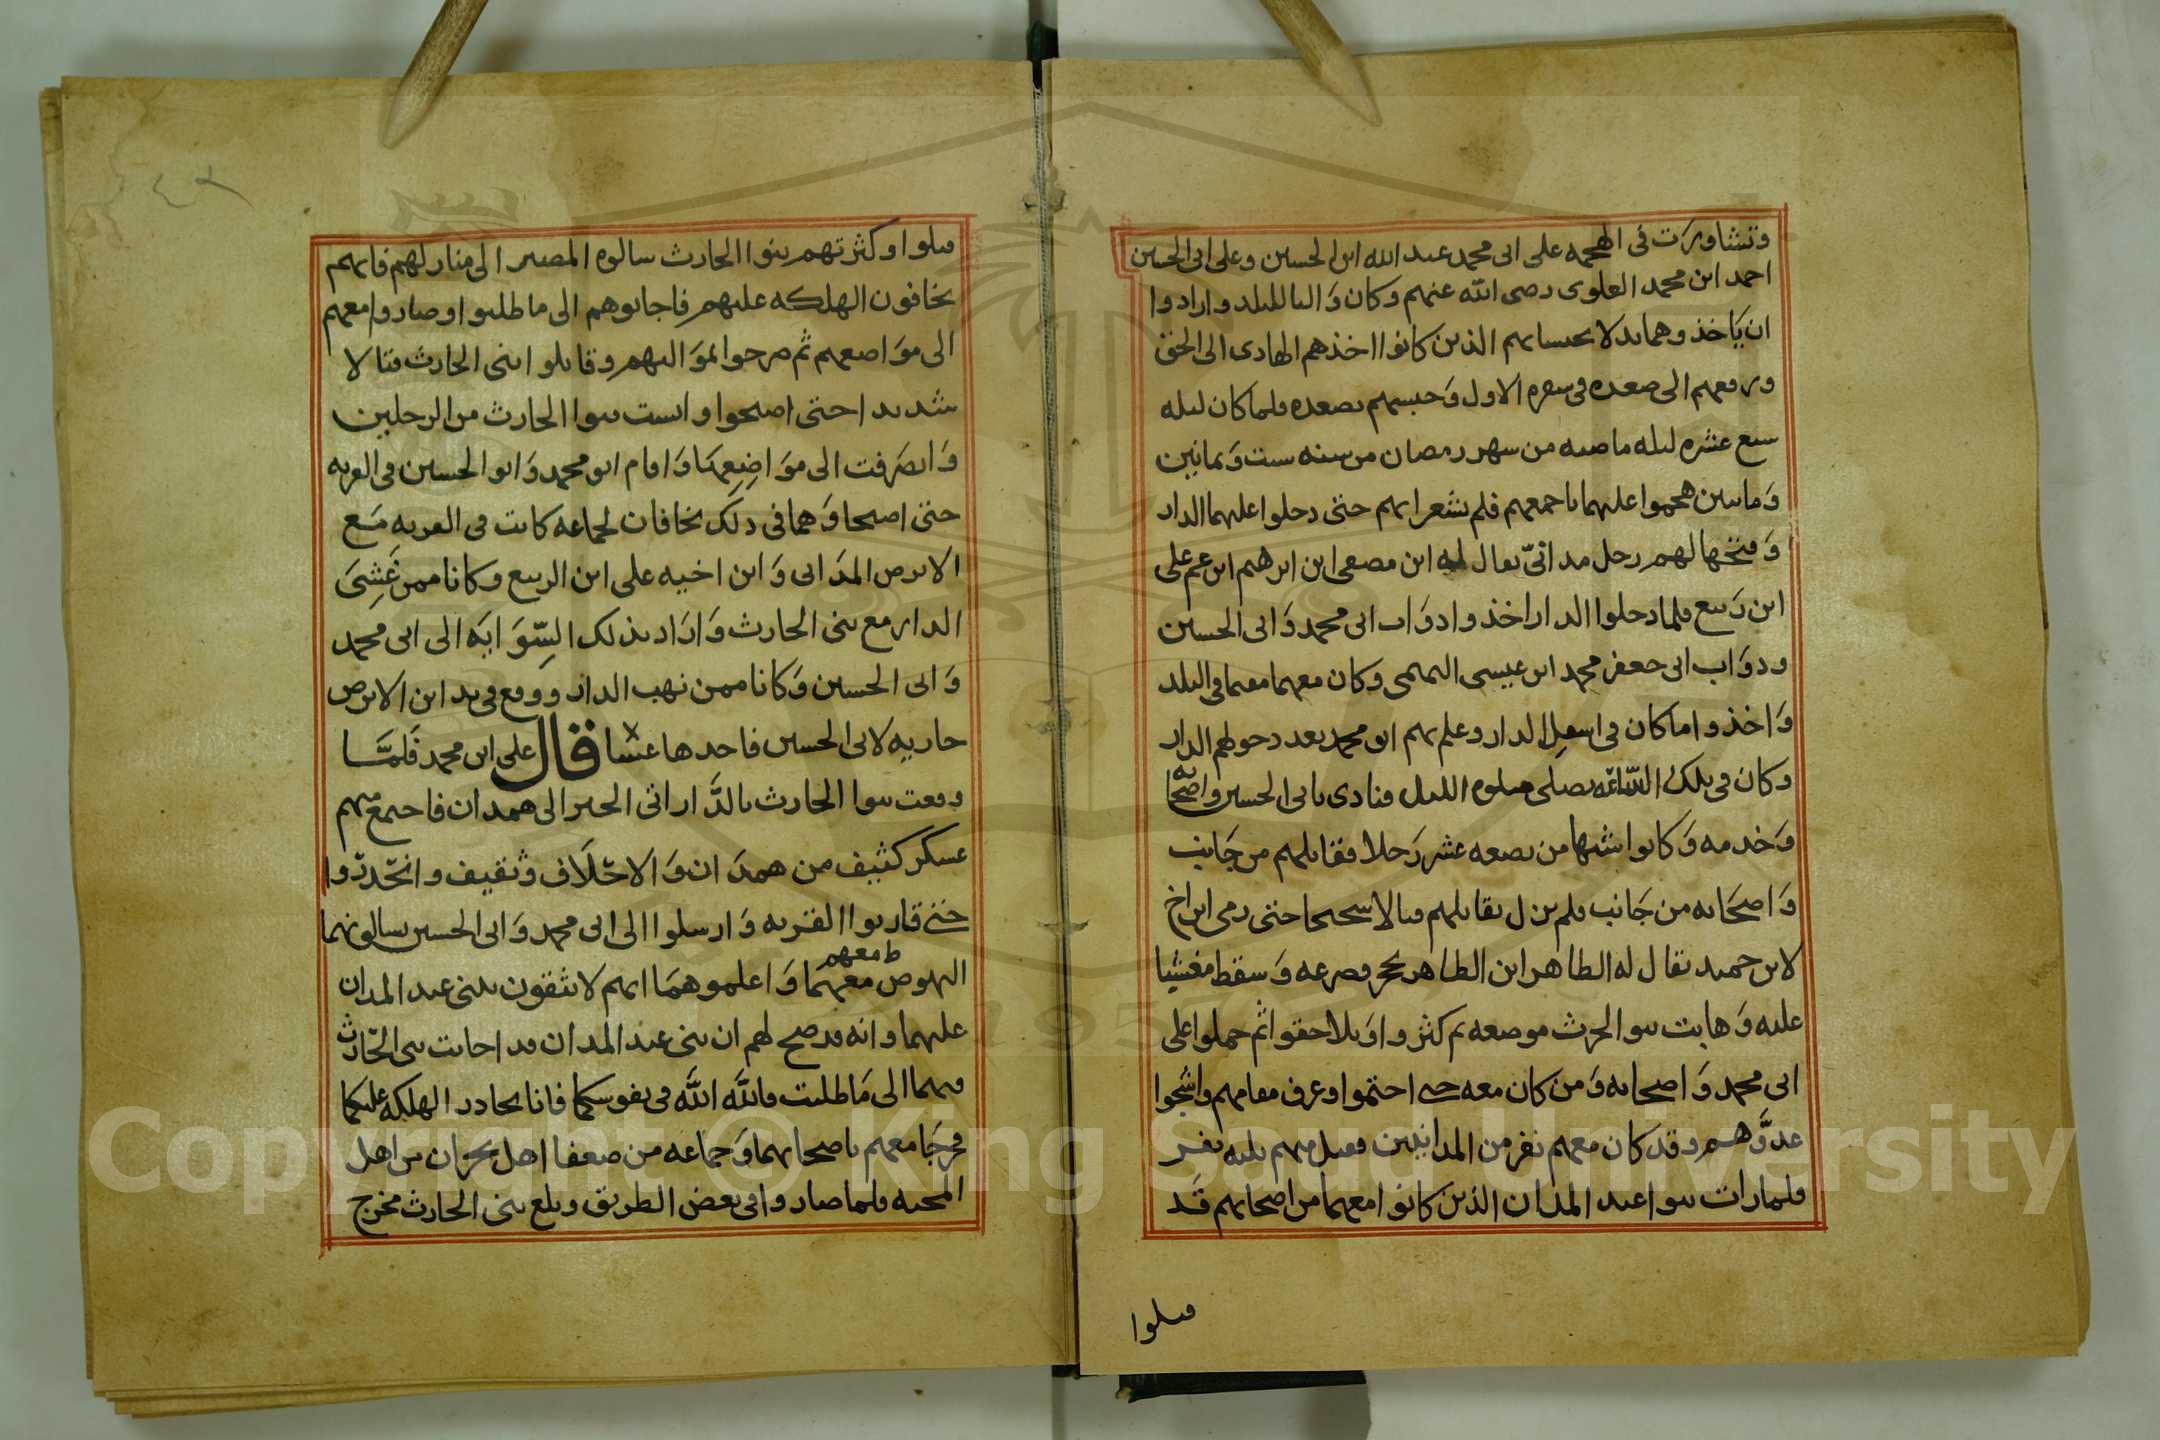 وتشاورت في الهجمه على ابى محمد عبد الله ابن الحسين وعلى ابى الحسين
احمد ابن محمد العلوى رضى الله عنهم وكان واليا للبلد وارادوا
ان ياخذوهما بدلا بحبسايهم الذين كانوا اخذهم الهادى الى الحق
ورفعهم الى صعده فى سفره الاول وحبسهم بصعده فلما كان ليله
سبع عشره ليله ماضيه من شهر رمضان من سنه ست وثمانين
وماىىين هجموا عليهما باجمعهم فلم يشعرا بهم حتى دخلوا عليهما الدار
وفتحها لهم رجل مدانىّ يقال له ابن مصعى ابن ابرهيم ابن عم على
ابن ربيع فلما دخلوا الدار اخذوا دواب ابى محمد وابى الحسين
ودواب ابى جعفر محمد ابن عيسى التميمى وكان معهما مقيما فى البلد
واخذوا ما كان فى اسفل الدار وعلم بهم ابو محمد بعد دخولهم الدار
وكان فى تلك الساعه يصلى صلوه الليل فنادى بابى الحسين واصحابه
وخدمه وكانوا شبيها من بضعه عشر رجلا فقاتلهم من جانب
واصحابه من جانب فلم يزل يقاتلهم قتالا شحيحا حتى رمى ابن اخ
لابن حميد يقال له الطاهر ابن الطاهر بحجر فصرعه وسقط مغشيا
عليه وهابت بنوا الحرث موضعه ثم كثروا وتلاحقوا ثم حملوا على
ابى محمد واصحابه ومن كان معه حتى احتموا وعرف مقامهم واشجوا
عدوهم وقد كان معهم نفر من المدانيين فقتل منهم ثلثه نفر
فلما رات بنوا عبد المدان الذين كانوا معهما من اصحابهم قد
قتلوا
قتلوا وكثرتهم بنوا الحارث سالوه المصير الى منازلهم فانهم
يخافون الهلكه عليهم فاجابوهم الى ما طلبوا وصاروا معهم
الى مواضعهم ثم صرخوا لمواليهم وقاتلوا بنى الحارث قتالا
شديدا حتى اصبحوا وايست بنوا الحارث من الرجلين
وانصرفت الى مواضعها واقام ابو محمد وابو الحسين فى القريه
حتى اصبحا وهما فى ذلك يخافان لجماعه كانت فى القريه مع
الابرص المدانى وابن اخيه على ابن الربيع وكانا ممن غشى
الدار مع بنى الحارث واراد بذلك السوايه الى ابى محمد
وابى الحسين وكانا ممن نهب الدار ووقع فى يد ابن الابرص
جاريه لابى الحسين فاخذها عشا قال على ابن محمد فلمّا
وقعت بنوا الحارث بالدار اتى الخبر الى همدان فاجتمع منهم
عسكر كثيف من همدان والاحلاف وثقيف وانحدروا
حتى قاربوا القريه وارسلوا الى ابى محمد وابى الحسين يسالونهما
النهوض معهما واعلموهما انهم لا يثقون ببنى عبد المدان
ط معهم
عليهما وانه قد صح لهم ان بنى عبد المدان قد اجابت بنى الحارث
فيهما الى ما طلبت فالله الله فى نفوسكما فانا نحاذر الهلكه عليكما
فخرجا معهم باصحابهما وجماعه من ضعفا اهل نجران من اهل
المحبه فلما صاروا فى بعض الطريق وبلغ بنى الحارث مخرج